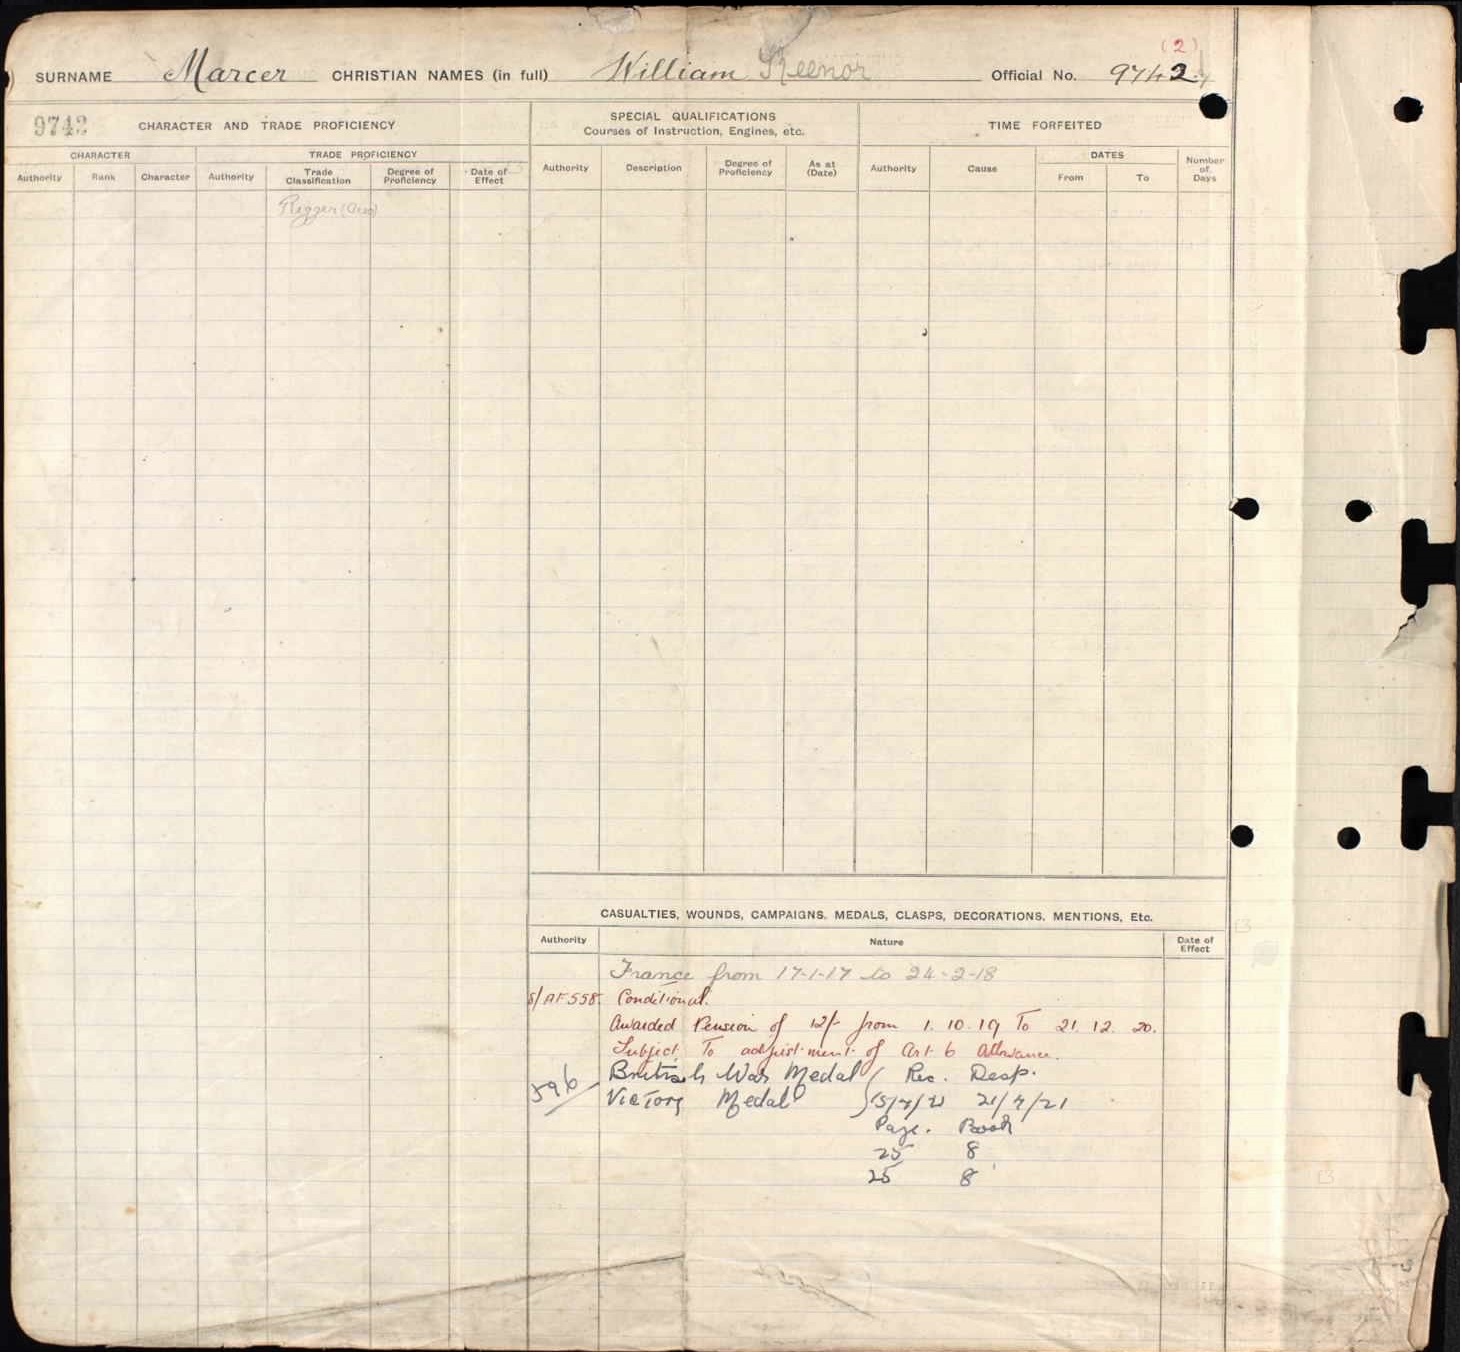 (2)
SURNAME Marcer CHRISTIAN NAMES (in full) William Official No. 9742
9742 CHARACTER AND TRADE PROFICIENCY
CHARACTER
TRADE PROFICIENCY
Authority Rank Character Authority Trade Classification Degree of Proficiency Date of Effect
Rigger (Aero)
SPECIAL QUALIFICATIONS
Courses of Instruction, Engines, etc.
Authority Description Degree of Proficiency As at (Date)
TIME FORFEITED
DATES
Authority Cause From To Number of Days
CASUALTIES, WOUNDS, CAMPAIGNS, MEDALS, CLASPS, DECORATIONS, MENTIONS, Etc.
Authority Nature Date of Effect
France from 17-1-17 to 24-2-18
S/AF558. Conditional.
Awarded Pension of 12/- from 1. 10. 19 To 21. 12. 20.
Subject To adjustment of Art. 6 Allowance.
British War Medal Rec. Desp.
596 Victory Medal 15/7/21 21/7/21
Page. Book
25 8
25 8